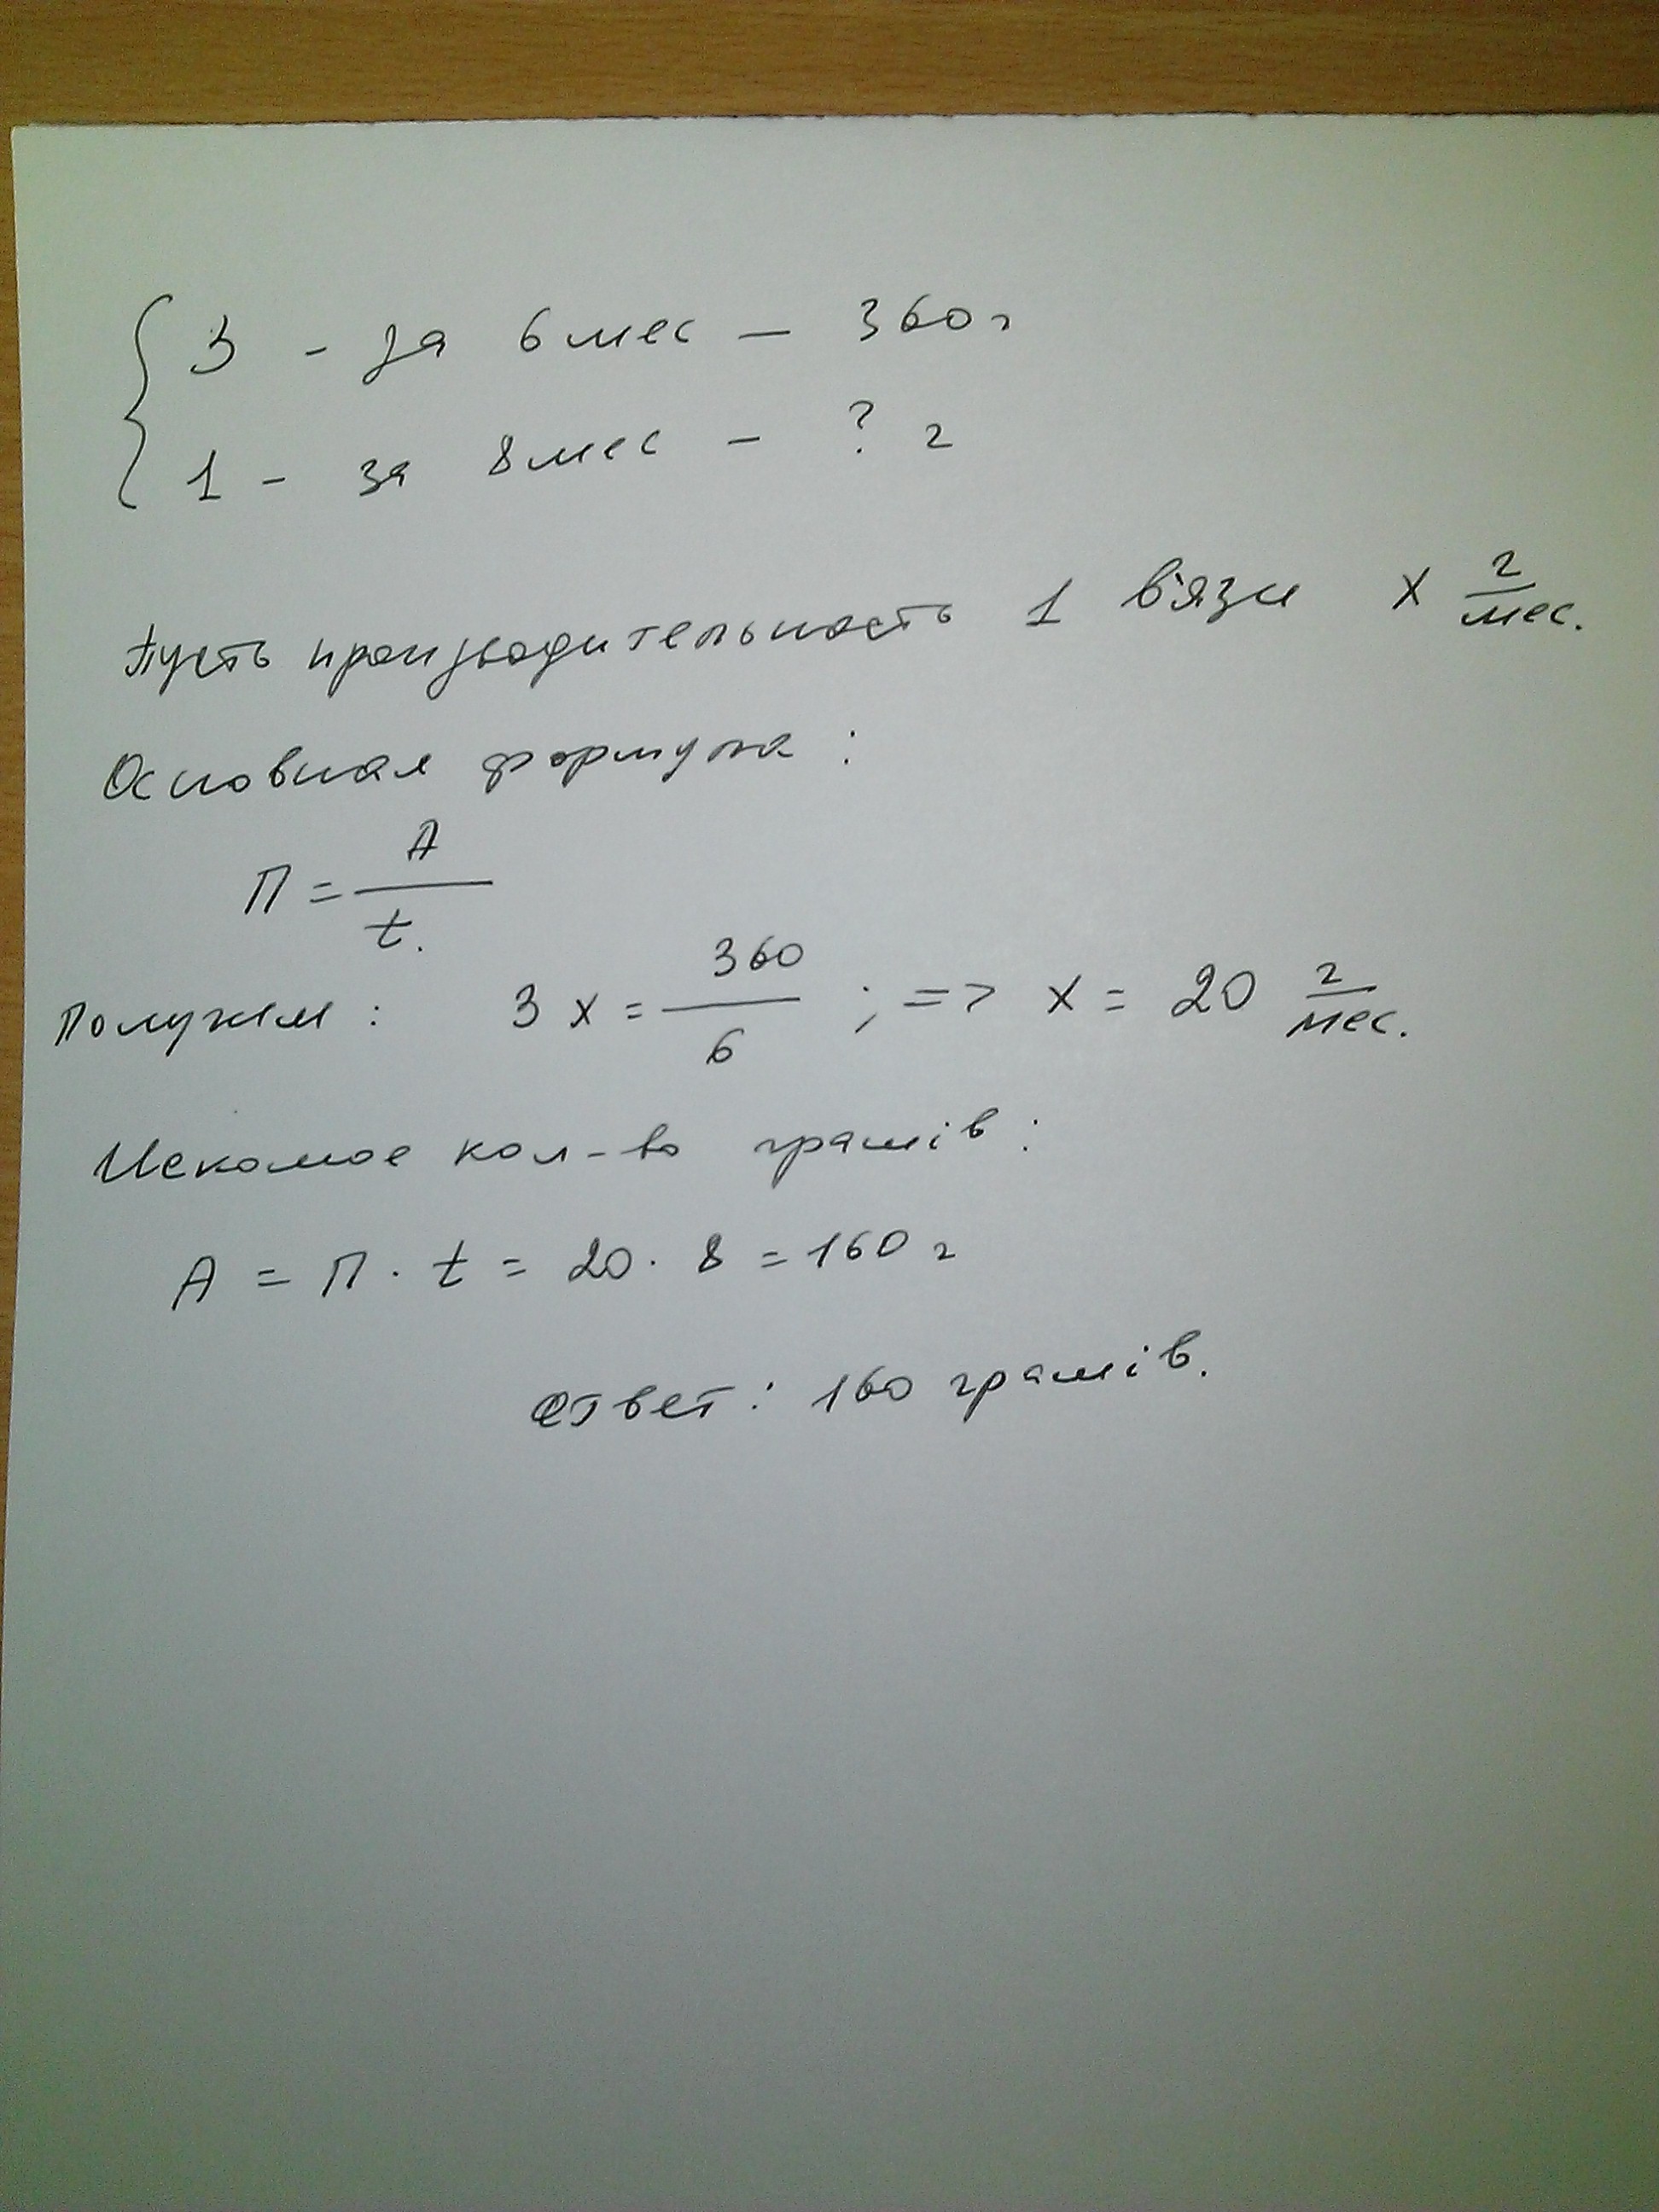 3 - за 6 мес - 360 г
1 - за 8 мес - ? г
Пусть производительность 1 в'язи x г/мес.
Основная формула:
П = A/t.
Получим: 3x = 360/6 ; => x = 20 г/мес.
Искомое кол-во грамів:
A = П · t = 20 · 8 = 160 г
Ответ: 160 грамів.